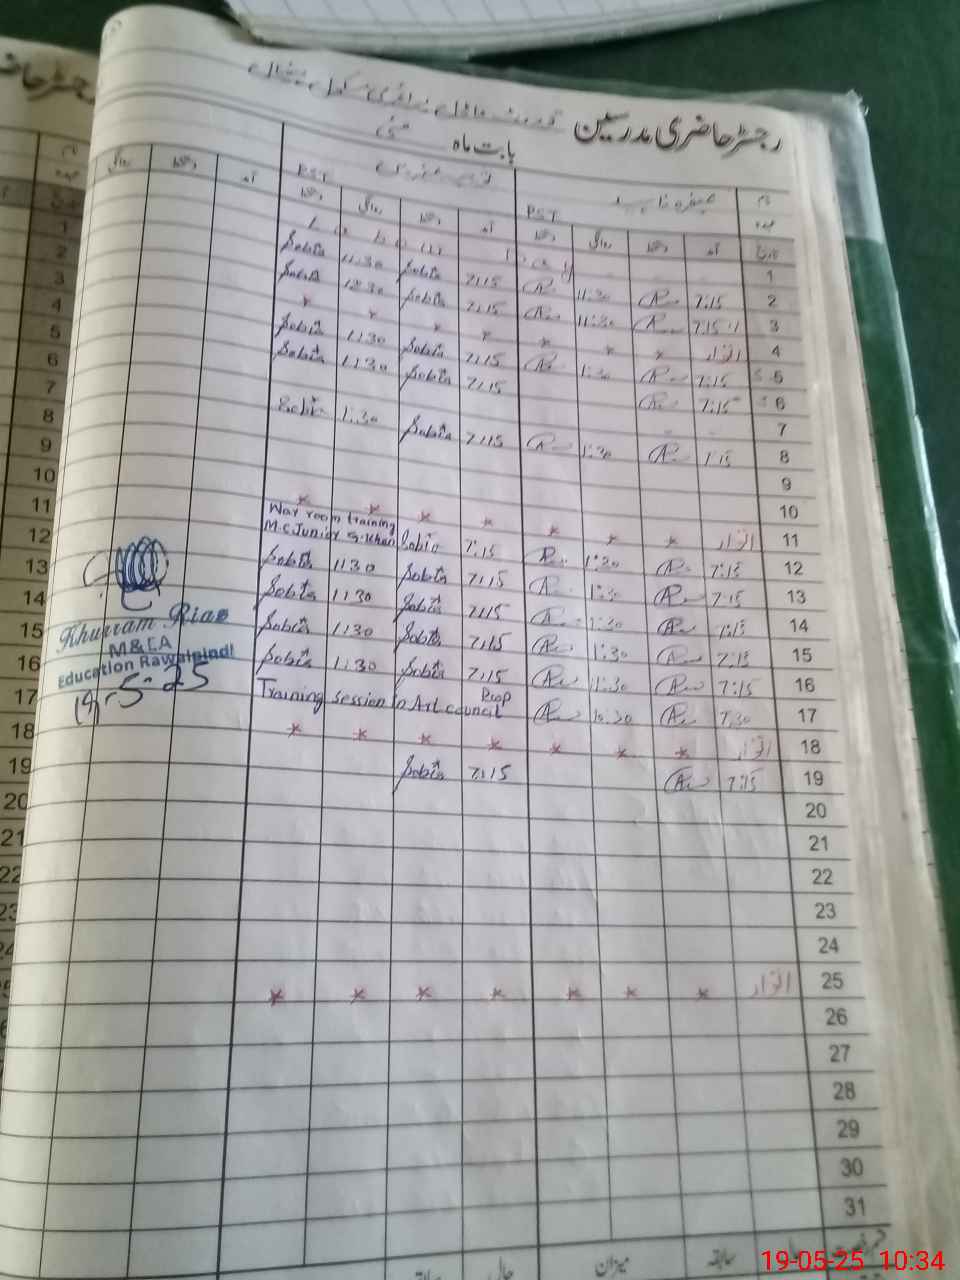 رجسٹر حاضری مدرسین
بابت ماہ مئی
نام
عہدہ
PST
PST
تاریخ آمد دستخط روانگی دستخط آمد دستخط روانگی دستخط آمد دستخط روانگی
1
2 7:15 11:30 7:15 Sobia 11:30 Sobia
3 7:15 11:30 7:15 Sobia 12:30 Sobia
4 اتوار * * * * * * *
5 7:15 1:30 7:15 Sobia 1:30 Sobia
6 7:15 7:15 Sobia 1:30 Sobia
7
8 7:15 1:30 7:15 Sobia 1:30 Sobia
9
10
11 اتوار * * * * * * *
12 7:15 1:30 7:15 Sobia War room training M.C. Junior S. Khan
13 7:15 1:30 7:15 Sobia 1:30 Sobia
14 7:15 1:30 7:15 Sobia 1:30 Sobia
15 7:15 1:30 7:15 Sobia 1:30 Sobia
16 7:15 11:30 7:15 Sobia 1:30 Sobia
17 7:30 10:30 Training session in Art council Rwp
18 اتوار * * * * * * *
19 7:15 7:15 Sobia
20
21
22
23
24
25 اتوار * * * * * * *
26
27
28
29
30
31
میزان سابقہ حال
Khurram Riaz
M&EA
Education Rawalpindi
19-5-25
19-05-25 10:34